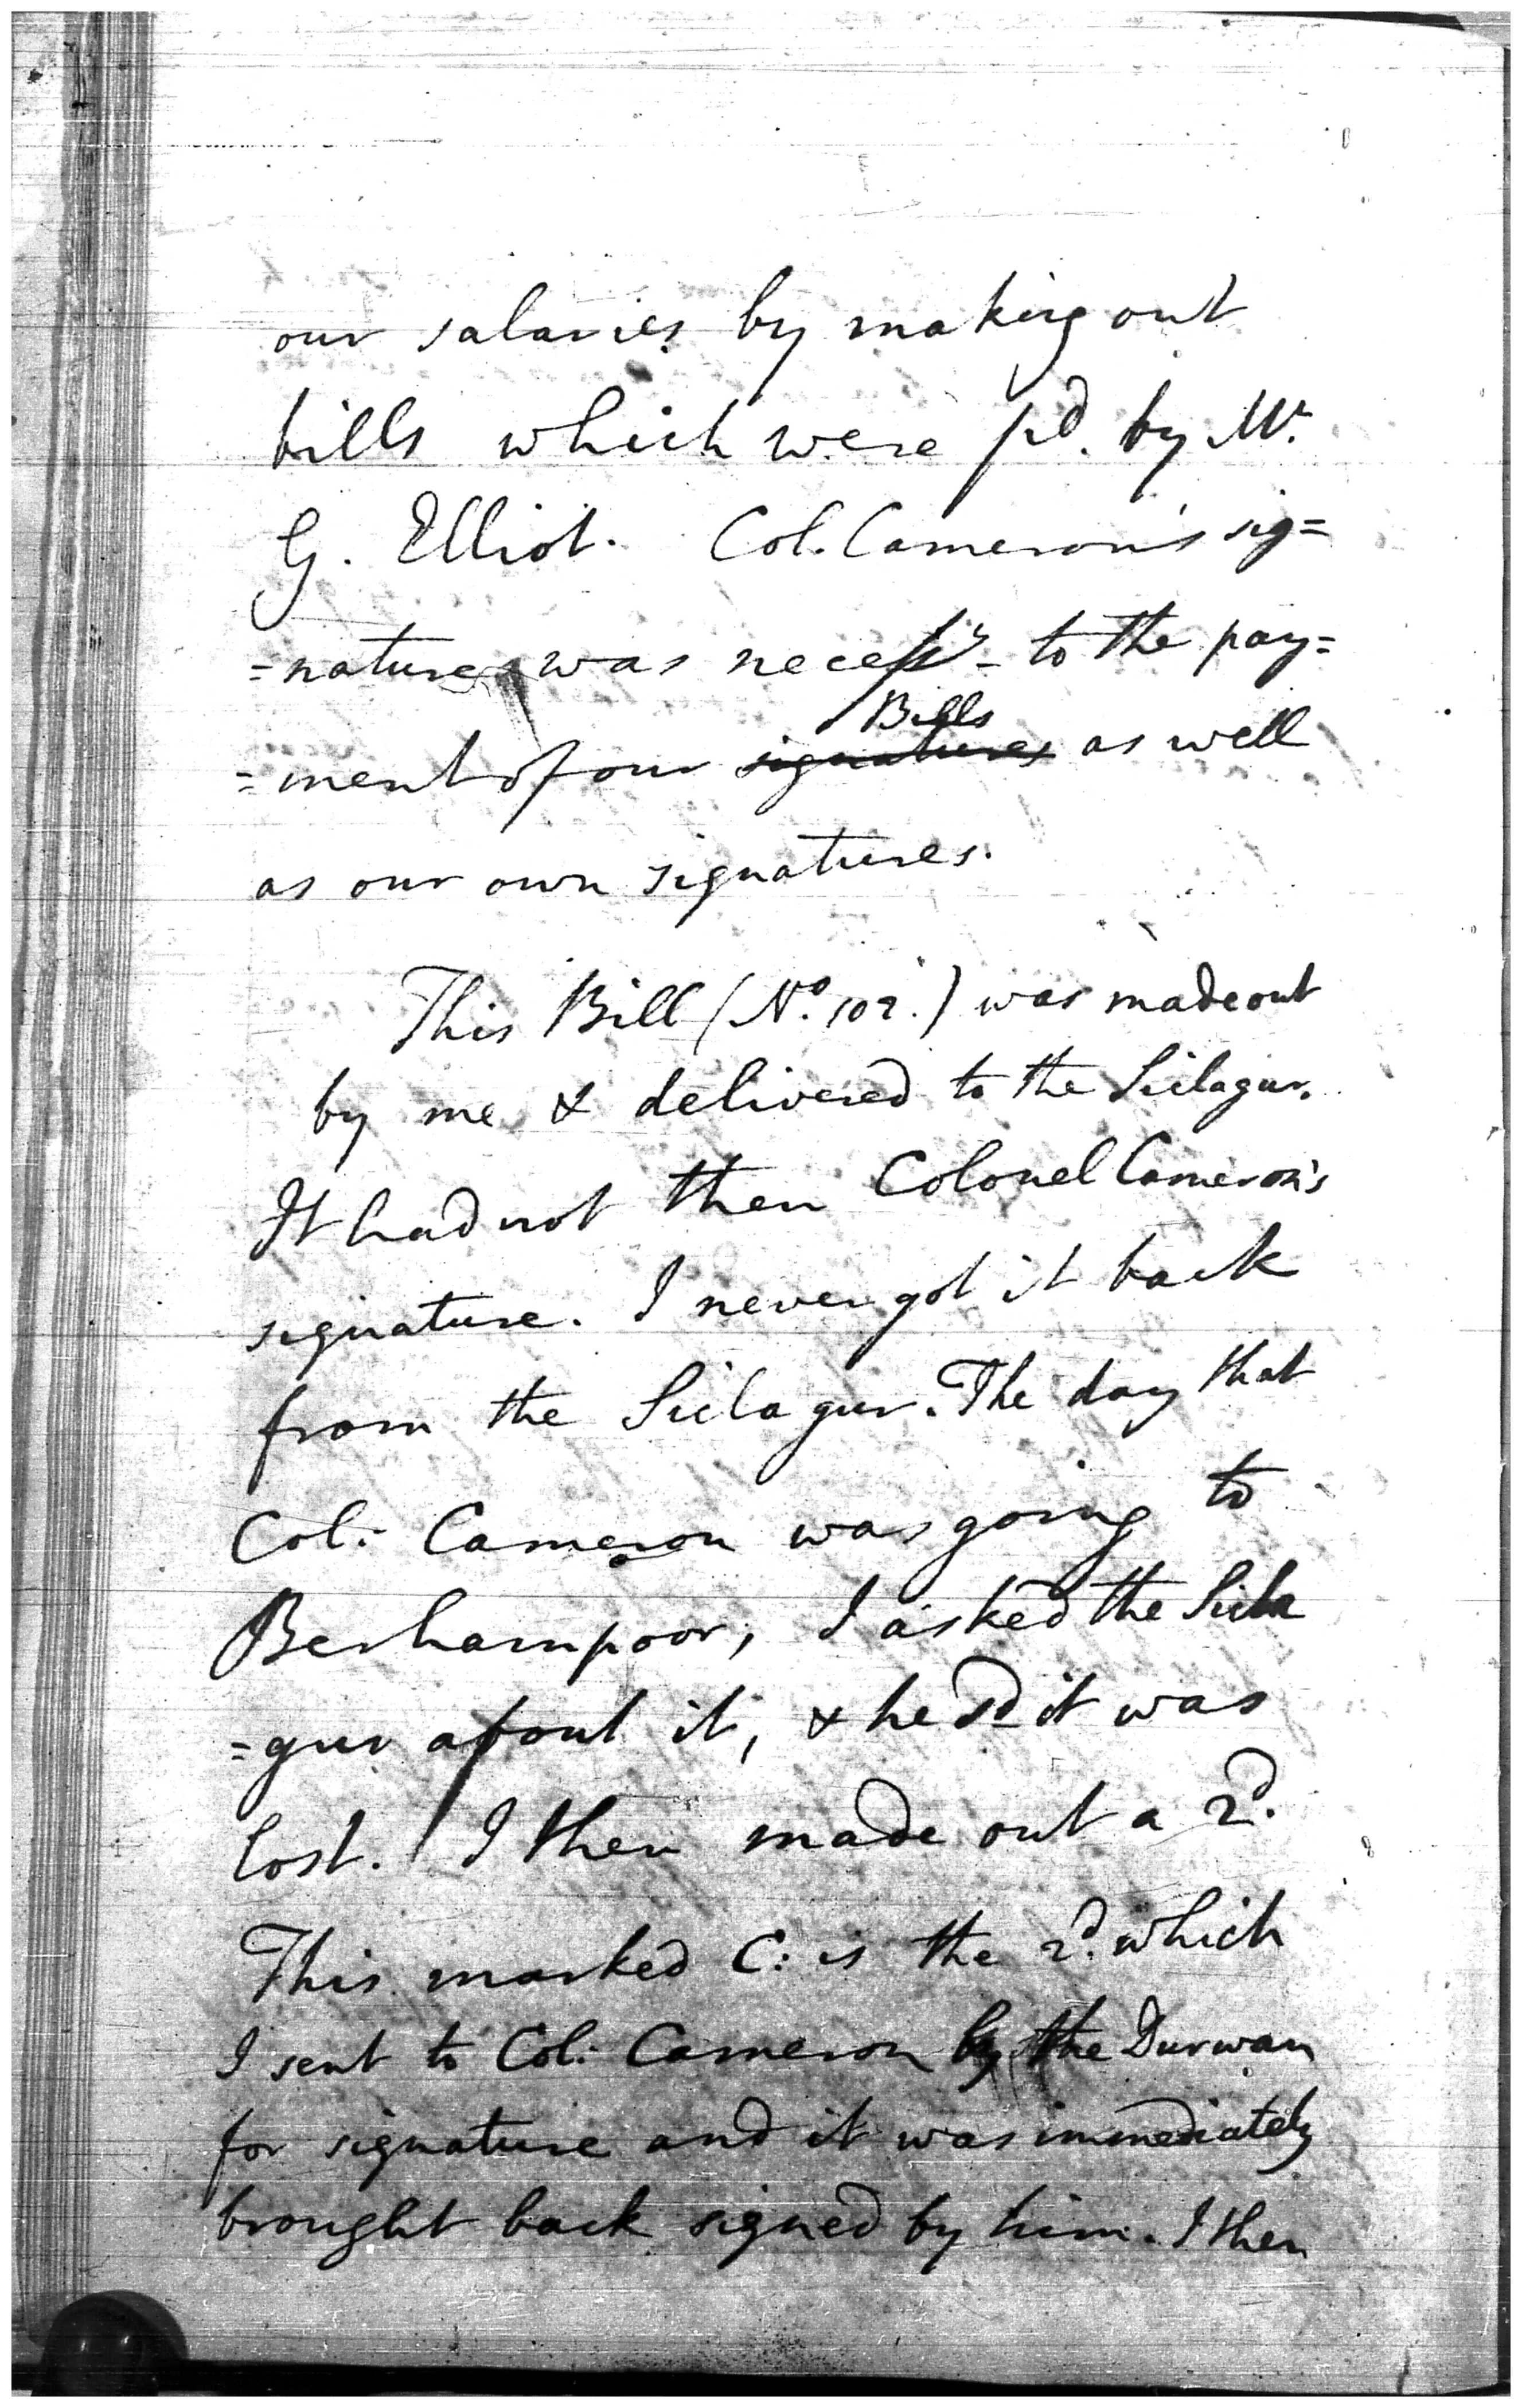 our salaries by making out
bills which were pd. by Mr.
G. Elliot. Col. Cameron's sig=
=nature was necessy. to the pay=
=ment of our signatures Bills as well
as our own signatures.
This Bill (No. 102.) was made out
by me & delivered to the Siclagur.
It had not then Colonel Cameron's
signature. I never got it back
from the Siclagur. The day that
Col: Cameron was going to
Berhampoor, I asked the Sicla
=gur about it, & he sd it was
lost. I then made out a 2d.
This marked C: is the 2d. which
I sent to Col: Cameron by the Durwan
for signature and it was immediately
brought back signed by him. I then